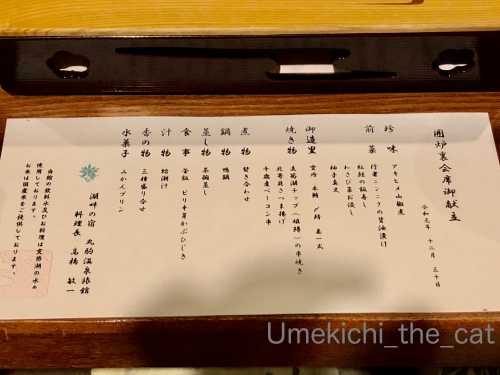 囲炉裏会席御献立
令和元年 十二月 三十日
珍味 アキヒメ山椒煮
前菜 行者ニンニクの醤油漬け
紅鮭の飯寿し
わさび菜お浸し
柚子真丈
御造里 雲丹 本鮪 〆鯖
焼き物 支笏湖チップ(姫鱒)の串焼き
北寄貝さつま揚げ
千歳産ベーコン串
煮物 焚き合わせ
鍋物 鴨鍋
蒸し物 茶碗蒸し
食事 釜飯 ピリ辛芽かぶひじき
汁物 蛤潮汁
香の物 三種盛り合せ
水菓子 みかんプリン
湖畔の宿 丸駒温泉旅館
料理長 高橋 敏一
当館の飲料水及びお料理は支笏湖の水を
使用しております。
お米は国産米をご提供しております。
Umekichi_the_cat